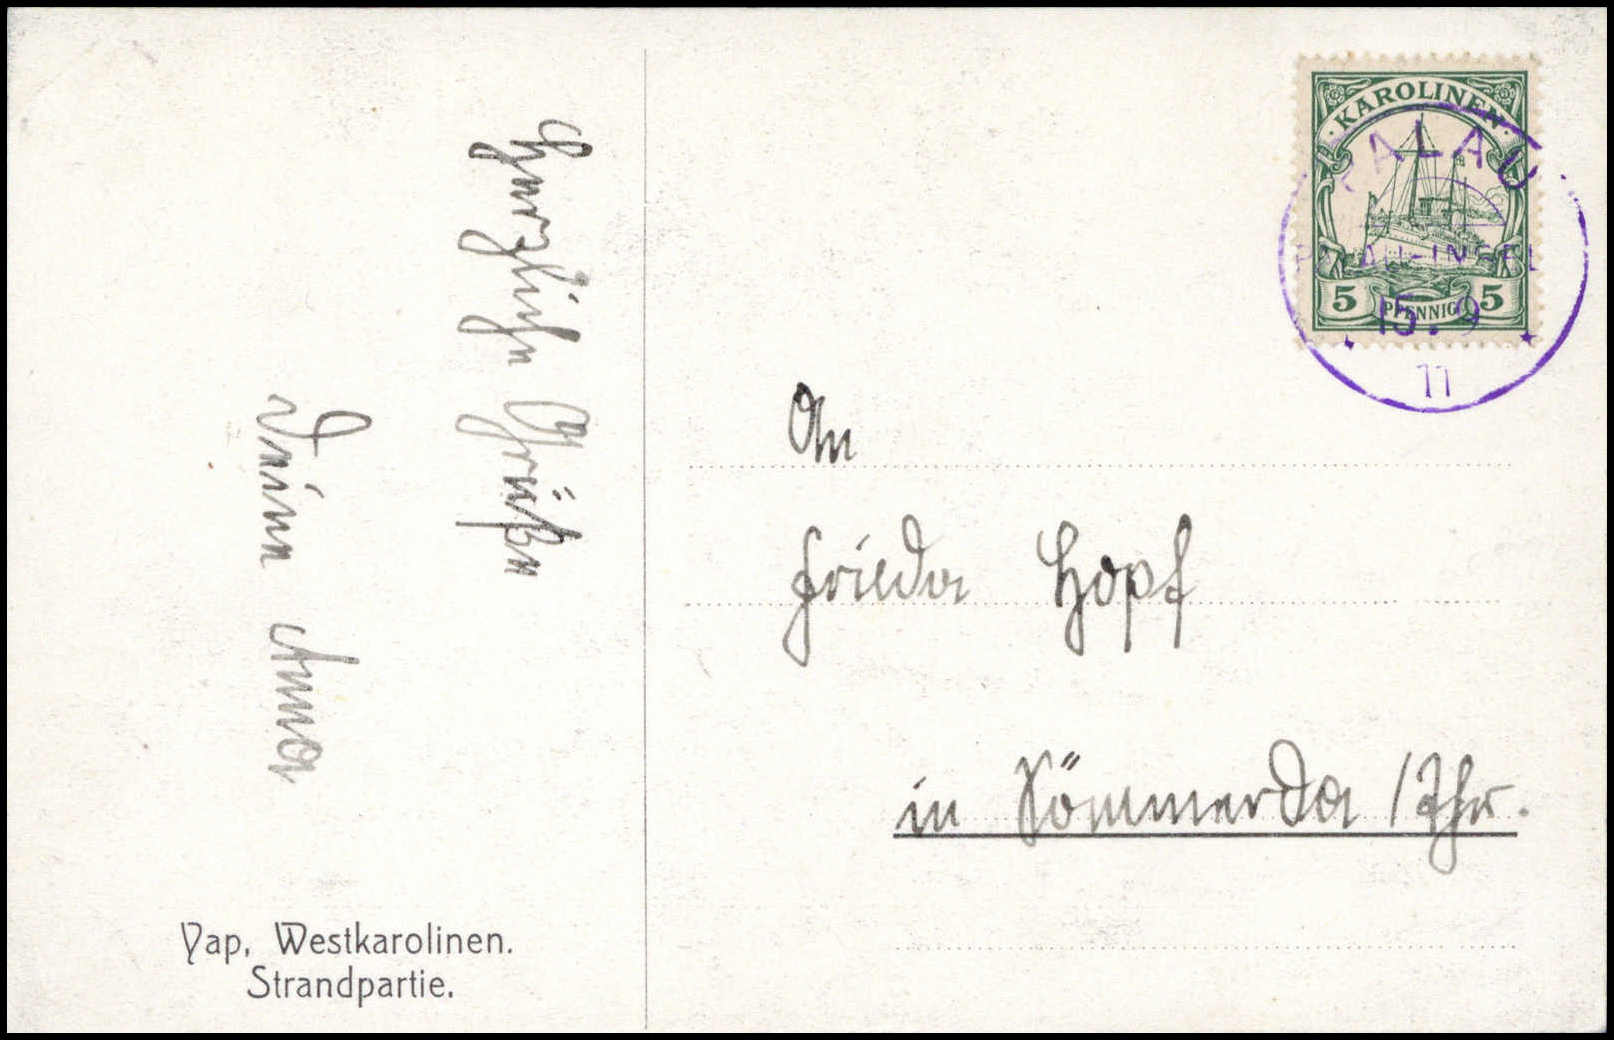 Herzliche Grüße
Deine Anna
Yap, Westkarolinen.
Strandpartie.
KAROLINEN
5 PFENNIG 5
PALAU
PALAU-INSEL
15.9
11
An
Frieda Hopf
in Sömmerda /Thr.